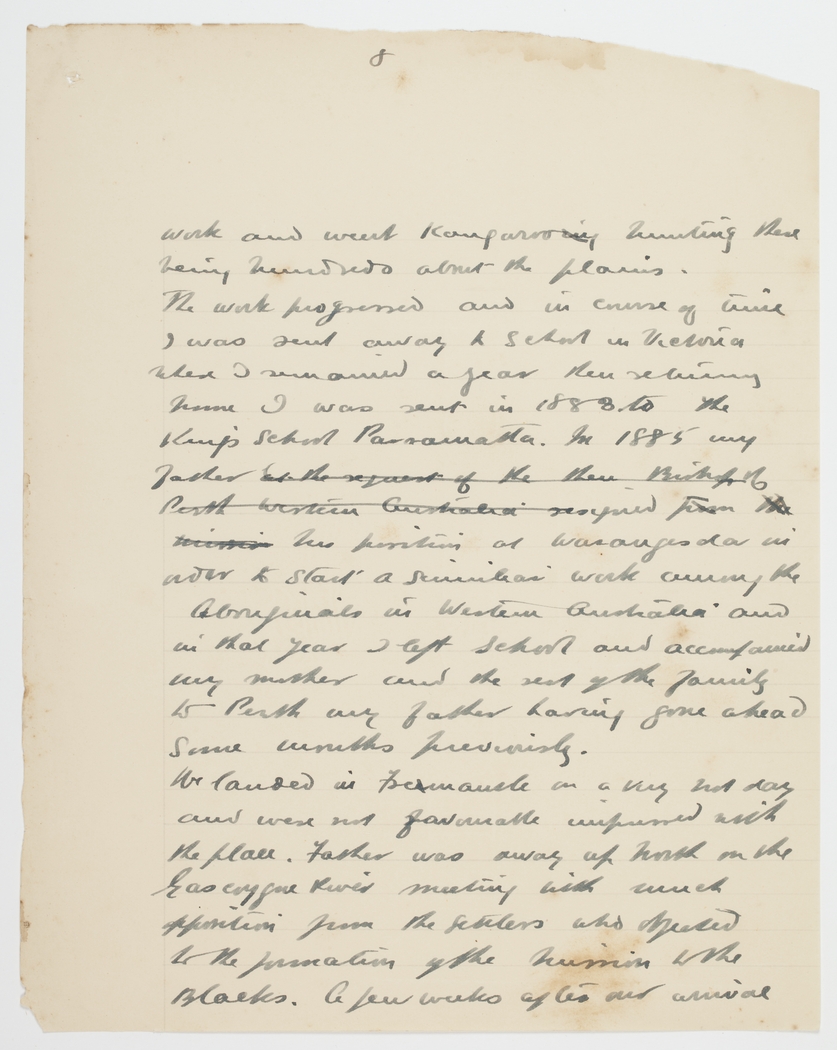 8
work and went Kangarooing hunting there
being hundreds about the plains.
The work progressed and in course of time
I was sent away to School in Victoria
where I remained a year then returning
home I was sent in 1883 to the
Kings School Parramatta. In 1885 my
father at the request of the then Bishop of
Perth Western Australia resigned from the
mission his position at Warangesda in
order to start a similiar work among the
Aboriginals in Western Australia and
in that year I left School and accompanied
my mother and the rest of the family
to Perth my father having gone ahead
some months previously.
We landed in Fremantle on a very hot day
and were not favourable impressed with
the place. Father was away up North on the
Gascoygne River meeting with much
opposition from the Settlers who objected
to the formation of the Mission to the
Blacks. A few weeks after our arrival